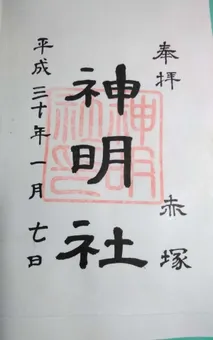 奉拝 赤塚
神明社
平成三十年一月七日